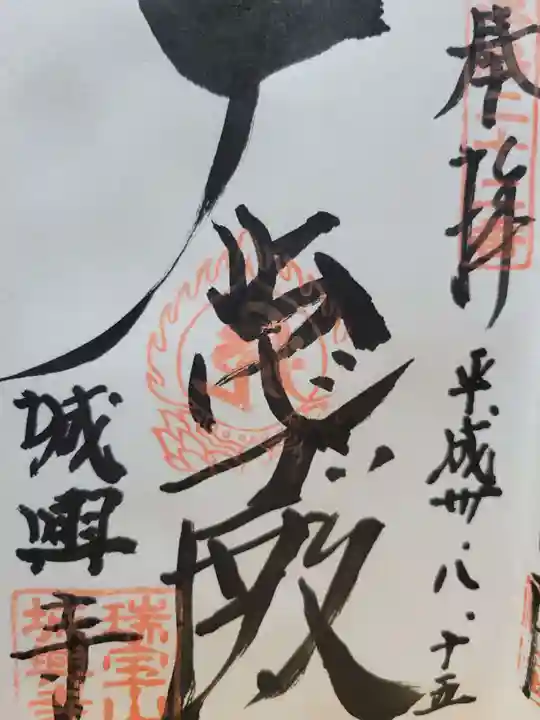 奉拝
平成卅.八.十五
悲殿
城興寺
瑞宝山
城興寺